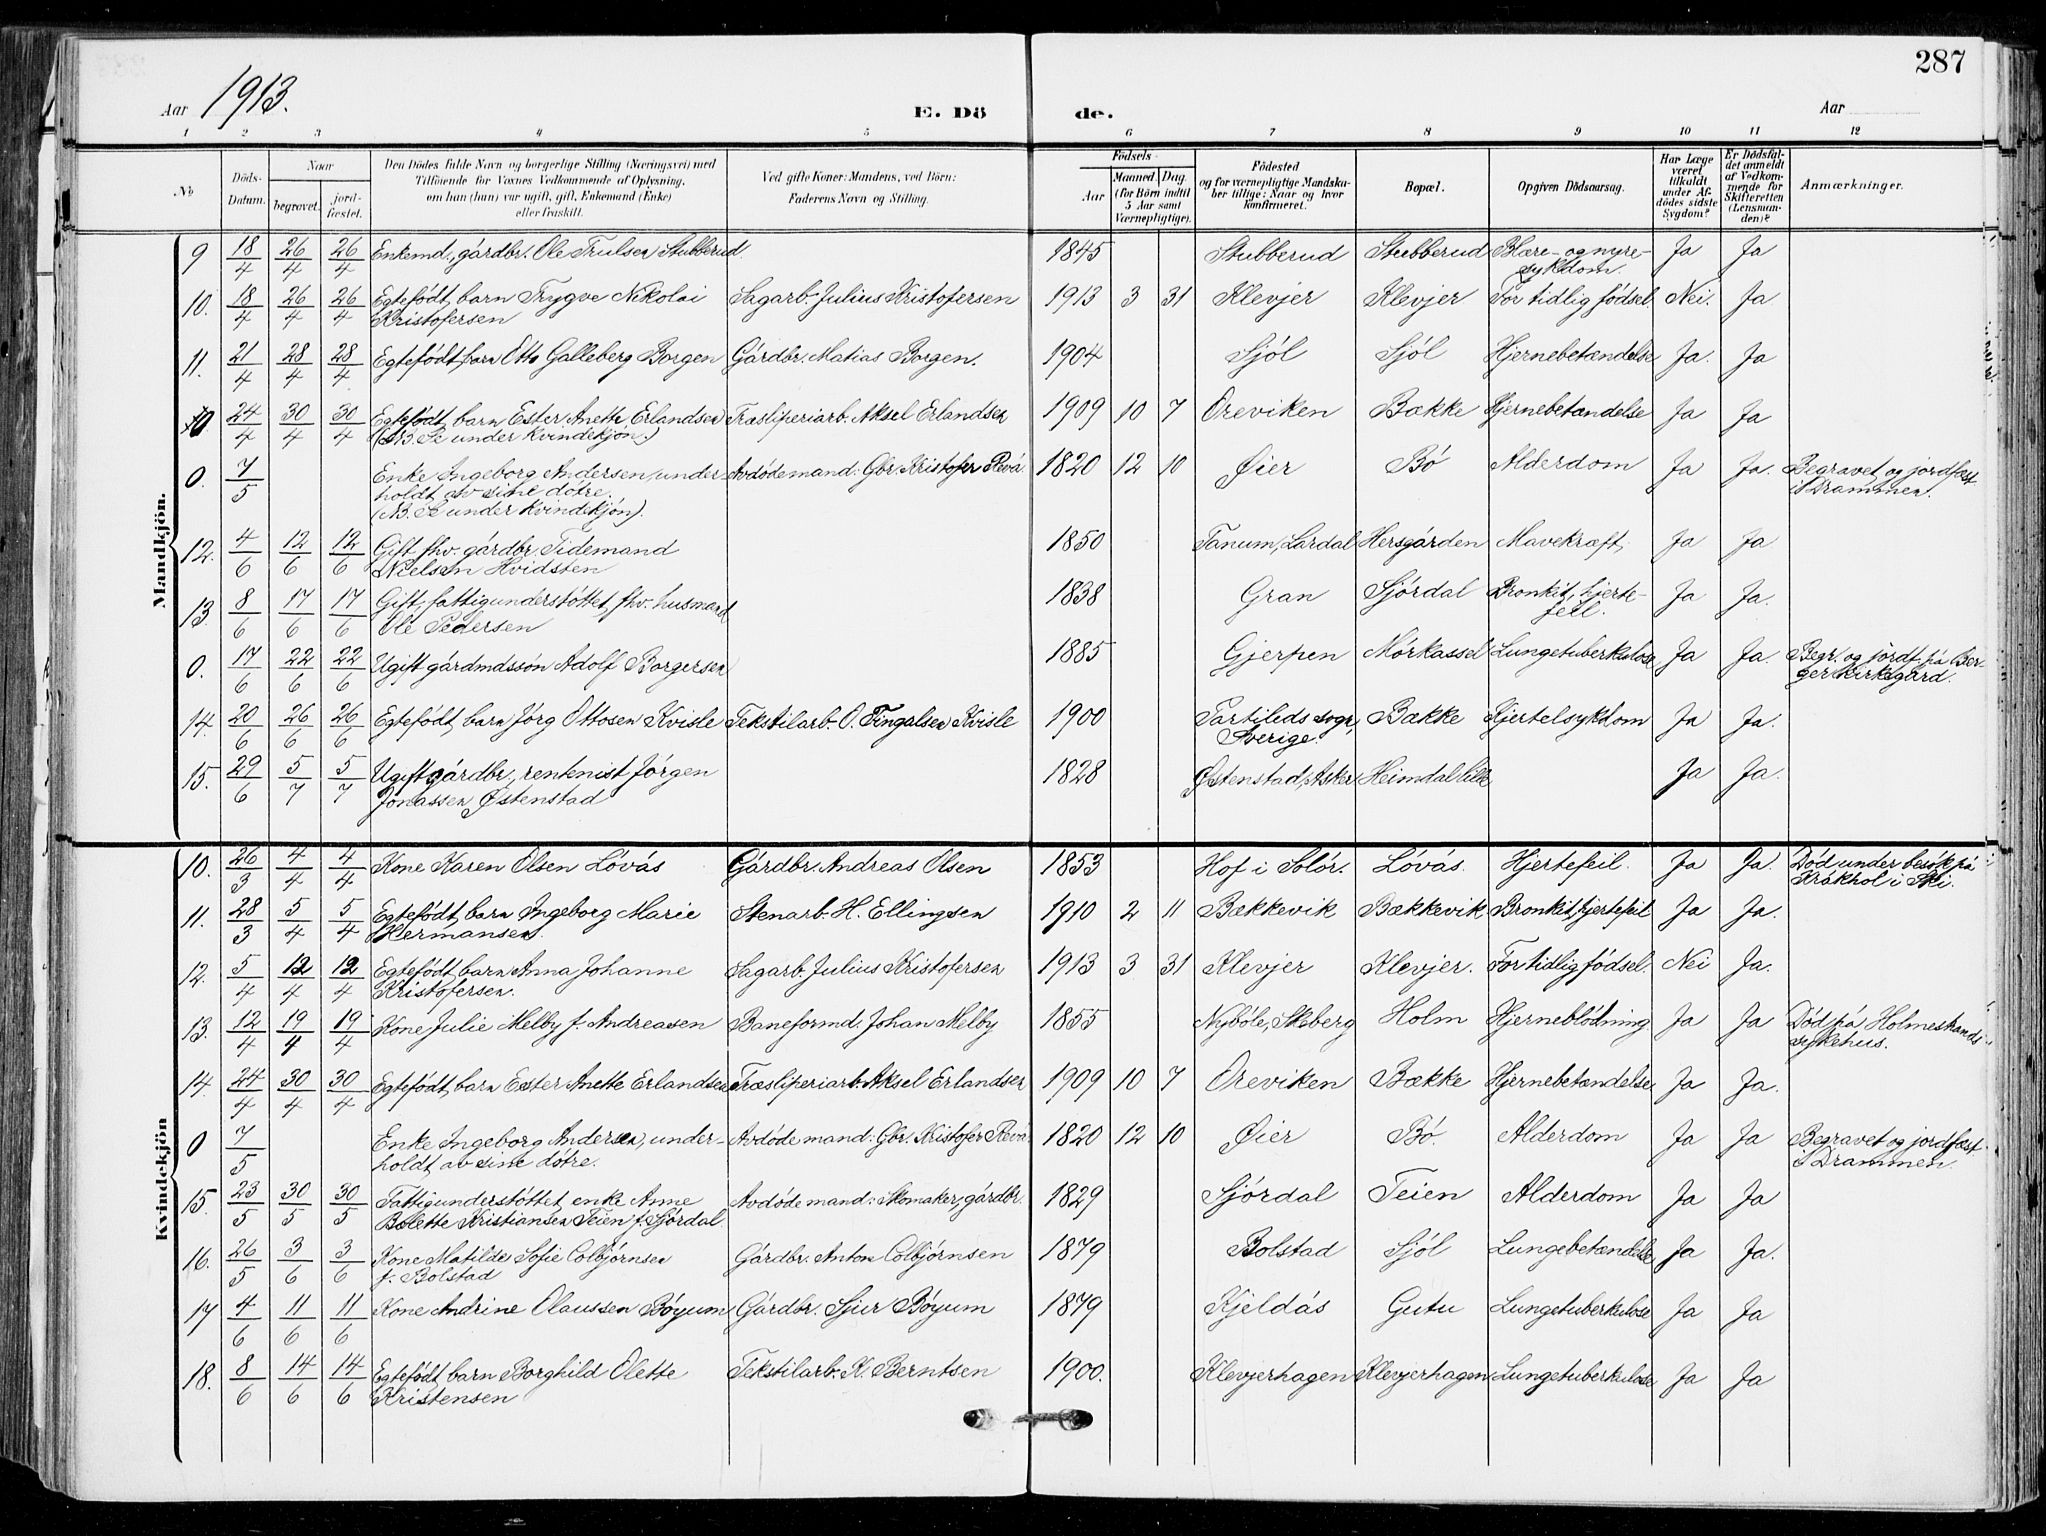 287
Aar 1913.
E. Døde.
Aar
1 2 3 4 5 6 7 8 9 10 11 12
No
Döds-Datum.
Naar
begravet.
jord-fæstet.
Den Dödes fulde Navn og borgerlige Stilling (Næringsvei) med
Tilföiende for Voxnes Vedkommende af Oplysning,
om han (hun) var ugift, gift, Enkemand (Enke)
eller fraskilt.
Ved gifte Koner: Mandens, ved Börn:
Faderens Navn og Stilling.
Födsels-
Aar
Maaned. Dag.
(for Börn indtil
5 Aar samt
Værnepligtige).
Födested
og for værnepligtige Mandska-
ber tillige: Naar og hvor
konfirmeret.
Bopæl.
Opgiven Dödsaarsag.
Har Læge
været
tilkaldt
under Af-
dödes sidste
Sygdom?
Er Dödsfal-
det anmeldt
af Vedkom-
mende for
Skifteretten
(Lensman-
den)?
Anmærkninger.
Mandkjön.
9 18/4 26/4 26/4 Enkemd., gårdbr. Ole Trulsen Stubberud 1845 Stubberud Stubberud Blære- og nyre- Ja Ja
sykdom.
10. 18/4 26/4 26/4 Egtefødt barn Trygve Nikolai Sagarb. Julius Kristofersen 1913 3 31 Klevjer Klevjer For tidlig fødsel. Nei. Ja
Kristofersen
11. 21/4 28/4 28/4 Egtefødt barn Otto Galleberg Borgen Gårdbr. Matias Borgen. 1904 Sjøl Sjøl Hjernebetændelse Ja. Ja
0 24/4 30/4 30/4 Egtefødt barn Ester Anette Erlandsen Træsliperiarb. Aksel Erlandsen 1909 10 7 Oreviken Bække Hjernebetændelse Ja Ja
(NB. Se under Kvindekjøn.)
0. 7/5 Enke Ingeborg Andersen, under- Avdøde mand: Gbr. Kristofer Revå 1820 12 10 Øier Bø Alderdom Ja Ja. Begravet og jordfæst
holdt av sine døtre. i Drammen.
(NB. Se under Kvindekjøn).
12. 4/6 12/6 12/6 Gift fhv. gårdbr. Tidemand 1850 Tanum, Lardal Hersgården Mavekræft, Ja Ja
Nielsen Hvidsten
13. 8/6 17/6 17/6 Gift, fattigunderstøttet, fhv. husmand 1838 Gran Sjørdal Bronkit, hjerte- Ja Ja.
Ole Pedersen feil.
0. 17/6 22/6 22/6 Ugift gårdmdssøn Adolf Borgersen 1885 Gjerpen Mørkassel Lungetuberkulose Ja Ja. Begr. og jordf. på Ber-
ger kirkegård.
14. 20/6 26/6 26/6 Egtefødt barn Jørg Ottosen Kvisle Tekstilarb. O. Fingalsen Kvisle 1900 Tartileds sogn, Bække Kjertelsykdom Ja Ja.
Sverige.
15. 29/6 5/7 5/7 Ugift gårdbr., rentenist Jørgen 1828 Østenstad, Asker Heimdal lille Ja Ja.
Jonassen Østenstad
Kvindekjön
10. 26/3 4/4 4/4 Kone Karen Olsen Løvås Gårdbr. Andreas Olsen 1853 Hof i Solør. Løvås. Hjertefeil. Ja Ja. Død under besøk på
Kråkhol i Ski.
11. 28/3 5/4 5/4 Egtefødt barn Ingeborg Marie Stenarb. H. Ellingsen 1910 2 11 Bækkevik Bækkevik Bronkit, hjertefeil Ja Ja.
Hermansen.
12. 5/4 12/4 12/4 Egtefødt barn Anna Johanne Sagarb. Julius Kristofersen 1913 3 31 Klevjer Klevjer. For tidlig fødsel. Nei Ja.
Kristofersen.
13. 12/4 19/4 19/4 Kone Julie Melby f. Andreasen Baneformd. Johan Melby 1855 Nybøle, Skiberg Holm Hjerneblødning Ja Ja Død på Holmestrands
sykehus.
14. 24/4 30/4 30/4 Egtefødt barn Ester Anette Erlandsen Træsliperiarb. Aksel Erlandsen 1909 10 7 Oreviken Bække Hjernebetændelse Ja Ja.
0 7/5 Enke Ingeborg Andersen, under- Avdøde mand: Gbr. Kristofer Revå 1820 12 10 Øier Bø. Alderdom Ja Ja Begravet og jordfæst
holdt av sine døtre. i Drammen.
15. 23/5 30/5 30/5 Fattigunderstøttet enke Anne Avdøde mand: Skomaker, gårdbr. 1829 Sjørdal Teien Alderdom Ja Ja
Bolette Kristiansen Teien f. Sjørdal
16. 26/5 3/6 3/6 Kone Matilde Sofie Colbjørnsen Gårdbr. Anton Colbjørnsen 1879 Bolstad Sjøl Lungebetændelse Ja Ja.
f. Bolstad
17 4/6 11/6 11/6 Kone Andrine Olaussen Bøyum Gårdbr. Sjur Bøyum 1879 Kjeldås Gutu Lungetuberkulose Ja Ja
18. 8/6 14/6 14/6 Egtefødt barn Borghild Olette Tekstilarb. K. Berntsen 1900. Klevjerhagen Klevjerhagen Lungetuberkulose Ja Ja
Kristensen